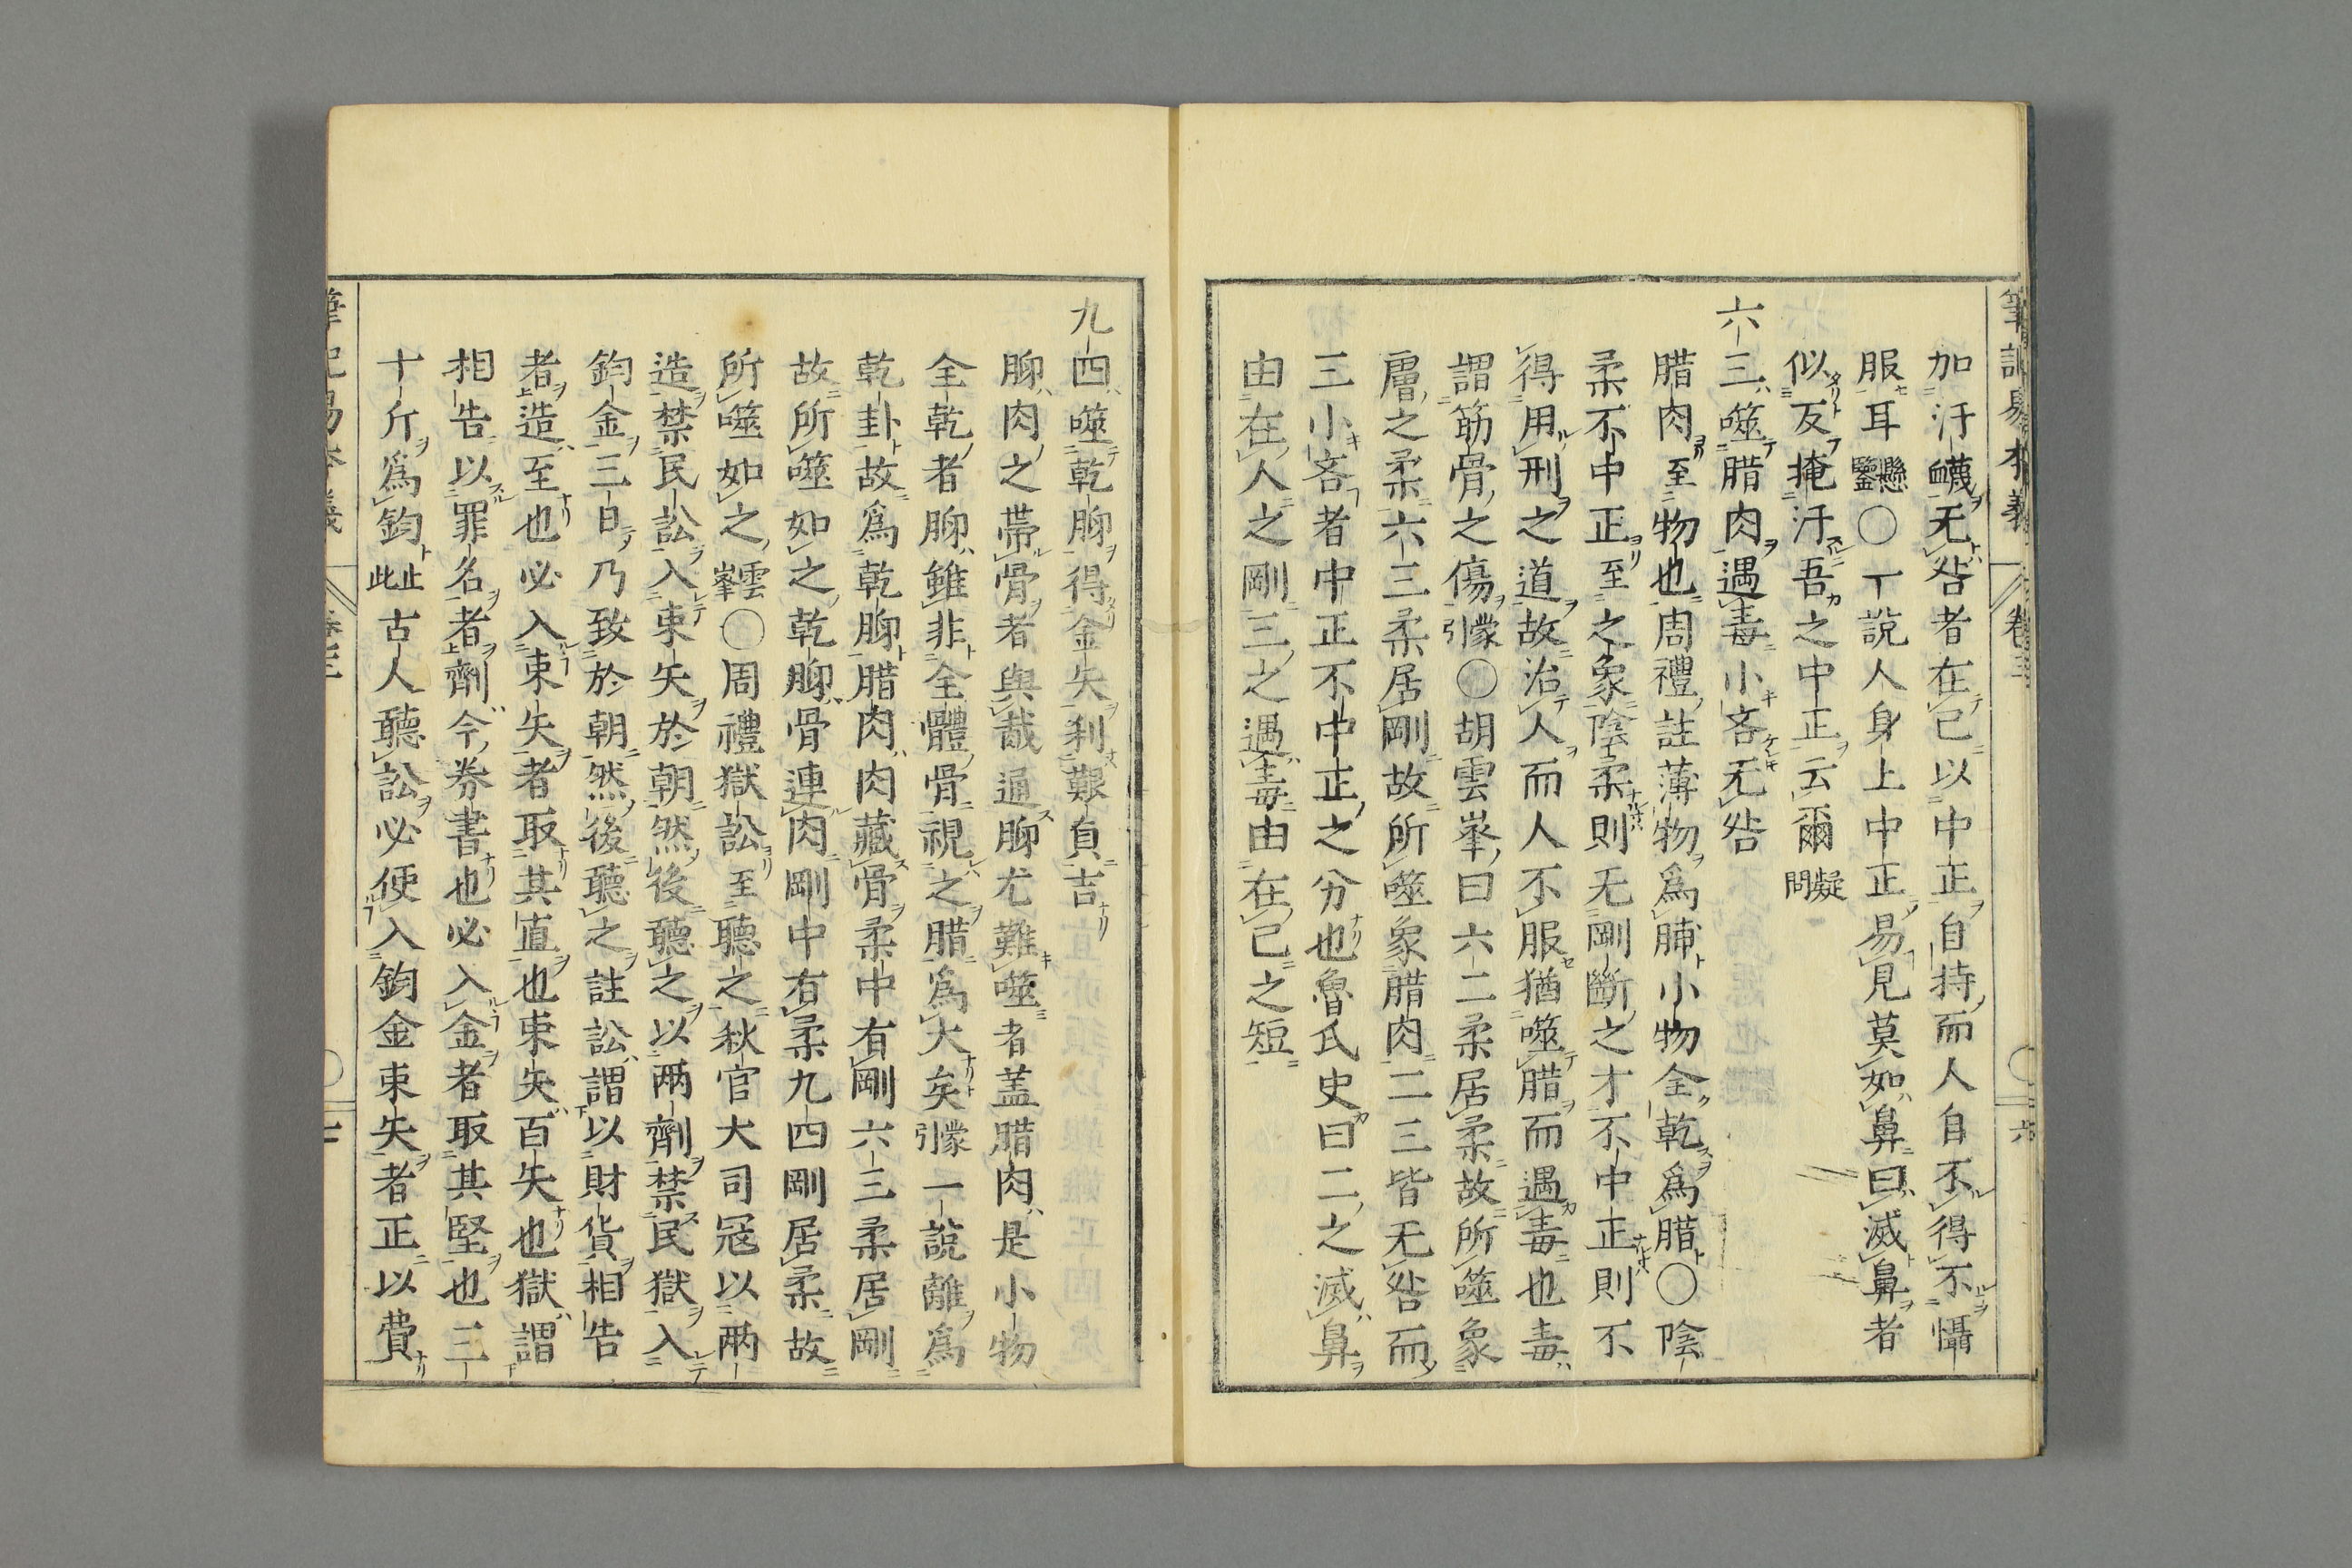 加汗衊无咎者在己以中正自持而人自不得不懾
服耳懸鑒〇一說人身上中正易見莫如鼻曰滅鼻者
似反掩汗吾之中正云爾疑問
六三噬腊肉遇毒小吝无咎
腊肉至物也周禮註薄物爲脯小物全乾爲腊〇陰
柔不中正至之象陰柔則无剛斷之才不中正則不
得用刑之道故治人而人不服猶噬腊而遇毒也毒
謂筋骨之傷蒙引〇胡雲峯曰六二柔居柔故所噬象
膚之柔六三柔居剛故所噬象腊肉二三皆无咎而
三小吝者中正不中正之分也魯氏史曰二之滅鼻
由在人之剛三之遇毒由在己之短
九四噬乾胏得金矢利艱貞吉
胏肉之帶骨者與胾通胏尤難噬者蓋腊肉是小物
全乾者胏雖非全體骨視之腊爲大矣蒙引一說離爲
乾卦故爲乾胏腊肉肉藏骨柔中有剛六三柔居剛
故所噬如之乾胏骨連肉剛中有柔九四剛居柔故
所噬如之雲峯〇周禮獄訟至聽之秋官大司冦以兩
造禁民訟入束矢於朝然後聽之以兩劑禁民獄入
鈞金三日乃致於朝然後聽之註訟謂以財貨相告
者造至也必入束矢者取其直也束矢百矢也獄謂
相告以罪名者劑今券書也必入金者取其堅也三
十斤爲鈞止此古人聽訟必便入鈞金束矢者正以費